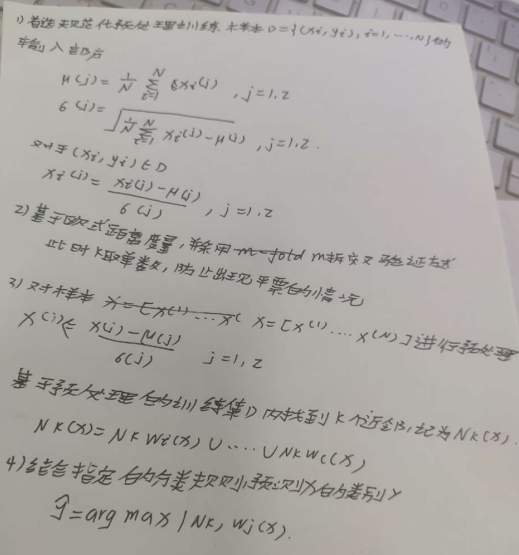 1) 首选规范化预处理训练样本 D={(xi, yi), i=1, …, N}的
输入 部分
μ(j)= 1/N Σ_{i=1}^{N} xi(j) , j=1,2
6(j)= √(1/N Σ_{i=1}^{N} xi(j)-μ(j)) , j=1,2.
对于(xi, yi)∈D
xi(j)= (xi(j)-μ(j))/6(j) , j=1.2
2)基于欧式距离度量, 并采用 m-fold m折交叉验证方式
此时 k取单数, 防止出现平票的情况
3) 对样本 x=[x(1)…x( X=[x(1)…x(N)]进行预处理
X(j)← (x(j)-μ(j))/6(j) j=1,2
基于预处理的训练集D内找到k个近邻,记为Nk(x).
NK(X)=NKW1(X)∪····∪NKWC(X)
4)结合指定的分类规则预测X的类别Y
ŷ=arg max |NK, Wj(X).